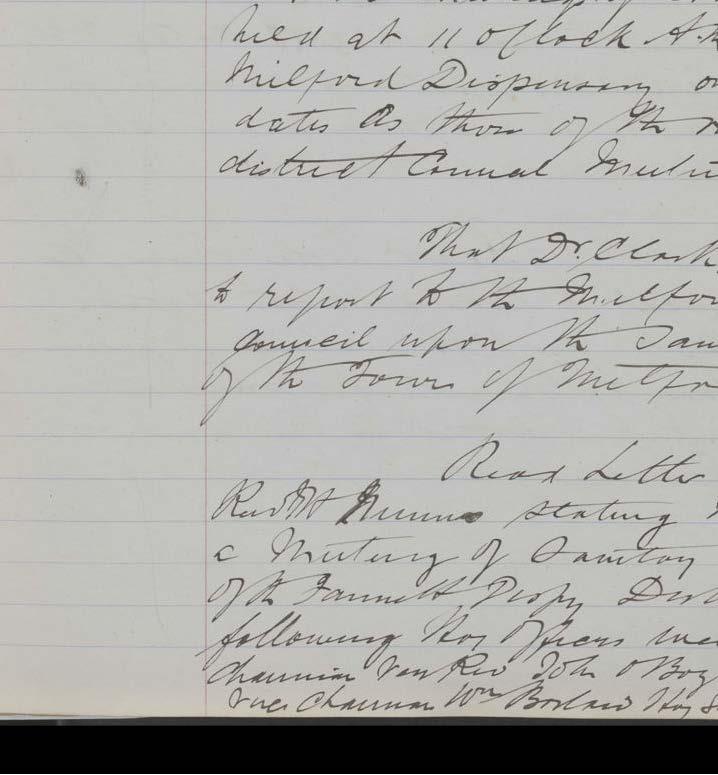 held at 11 o'clock A.
Milford Dispensary on
dates as those of the
district Council Meetin
That Dr. Clark
to report to the Milfor
Council upon the San
of the Town of Milfo
Read Letter
Rev stating
a Meeting of Sanitary
of the Fannett Dispy Dist
following Hon Officers wer
Chairman Very Rev John O Boy
Vice Chairman Wm Borland Hon S